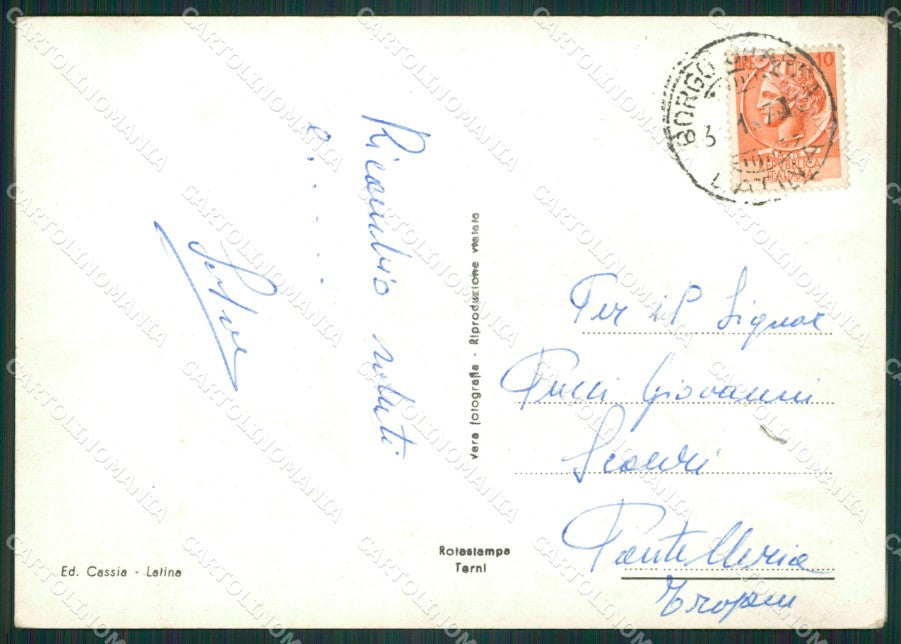 Ricambio saluti
e . . . . .
BORGO
LATINA
LIRE 10
Per il Signor
Pucci Giovanni
Scauri
Pantelleria
Trapani
Vera fotografia - Riproduzione vietata
Rotastampa
Terni
Ed. Cassia - Latina
CARTOLINOMANIA